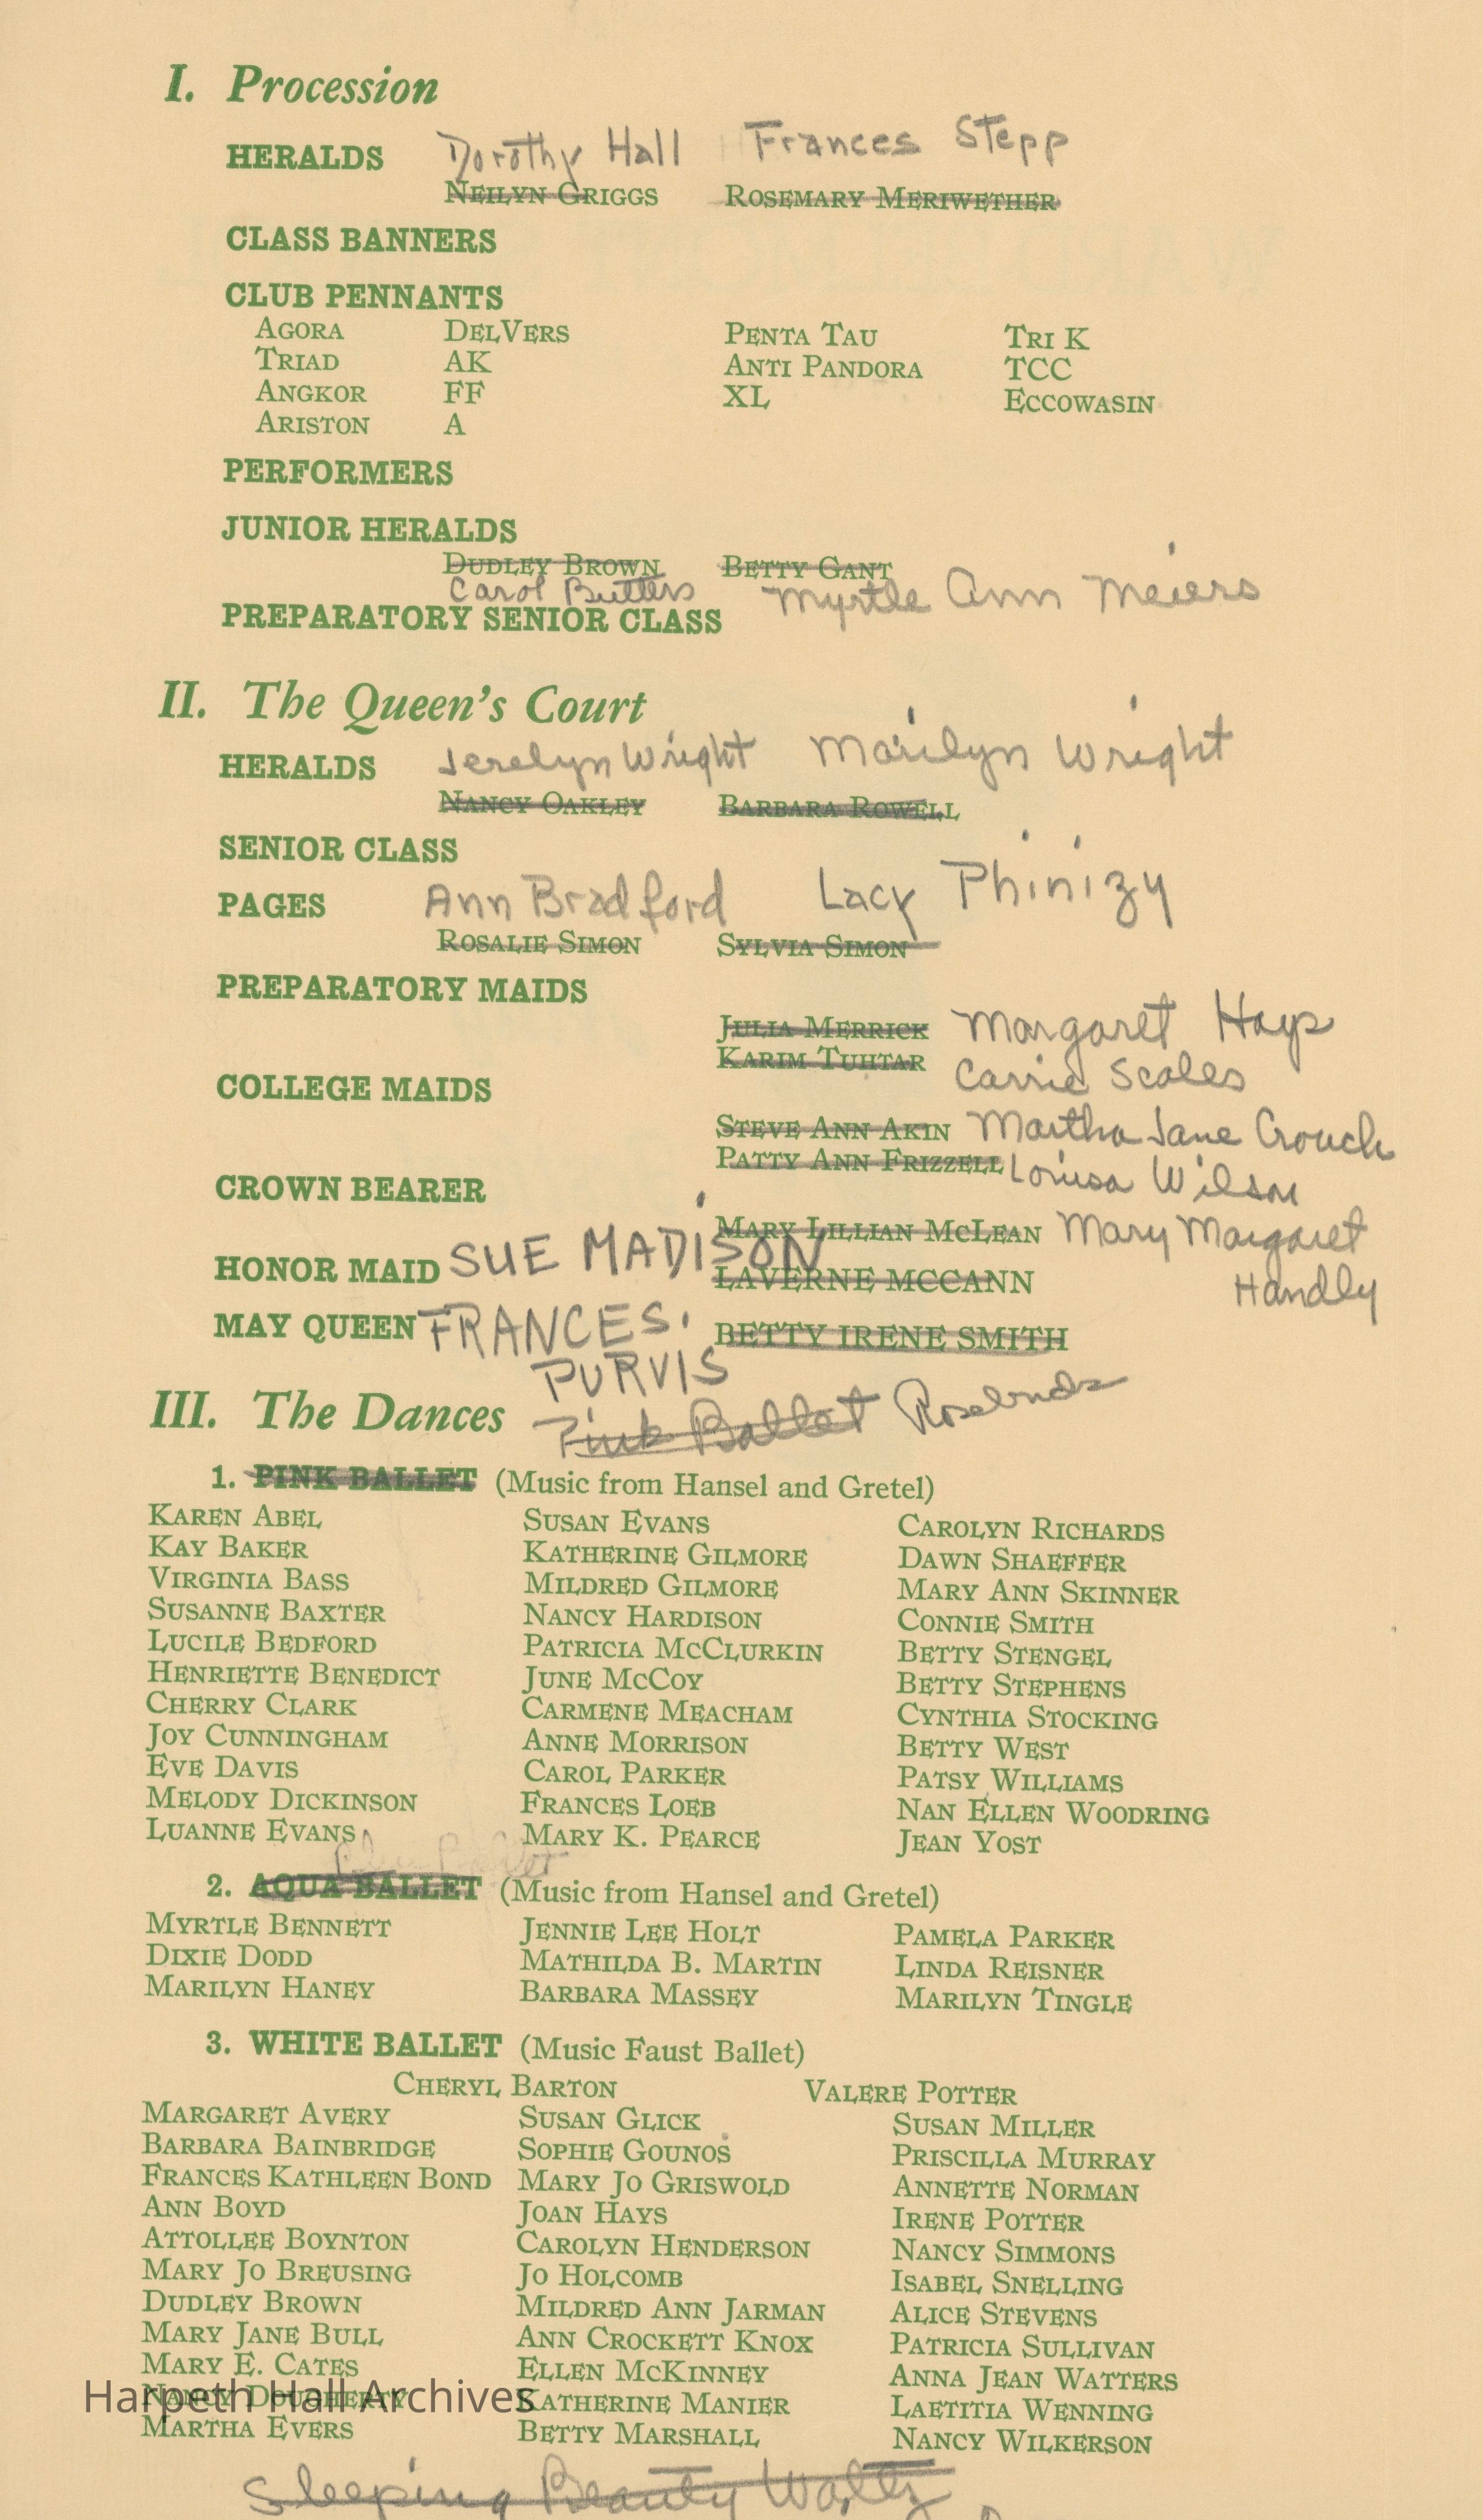 I. Procession
HERALDS Dorothy Hall Frances Stepp
NEILYN GRIGGS ROSEMARY MERIWETHER
CLASS BANNERS
CLUB PENNANTS
AGORA DELVERS PENTA TAU TRI K
TRIAD AK ANTI PANDORA TCC
ANGKOR FF XL ECCOWASIN
ARISTON A
PERFORMERS
JUNIOR HERALDS
DUDLEY BROWN BETTY GANT
Carol Butters Myrtle Ann Meiers
PREPARATORY SENIOR CLASS
II. The Queen's Court
HERALDS Jerelyn Wright Marilyn Wright
NANCY OAKLEY BARBARA ROWELL
SENIOR CLASS
PAGES Ann Bradford Lacy Phinizy
ROSALIE SIMON SYLVIA SIMON
PREPARATORY MAIDS
JULIA MERRICK Margaret Hays
KARIM TUHTAR Carrie Scales
COLLEGE MAIDS
STEVE ANN AKIN Martha Jane Crouch
PATTY ANN FRIZZELL Louisa Wilson
CROWN BEARER
MARY LILLIAN MCLEAN Mary Margaret
Handly
HONOR MAID SUE MADISON LAVERNE MCCANN
MAY QUEEN FRANCES PURVIS BETTY IRENE SMITH
III. The Dances Pink Ballet Rosebuds
1. PINK BALLET (Music from Hansel and Gretel)
KAREN ABEL SUSAN EVANS CAROLYN RICHARDS
KAY BAKER KATHERINE GILMORE DAWN SHAEFFER
VIRGINIA BASS MILDRED GILMORE MARY ANN SKINNER
SUSANNE BAXTER NANCY HARDISON CONNIE SMITH
LUCILE BEDFORD PATRICIA MCCLURKIN BETTY STENGEL
HENRIETTE BENEDICT JUNE MCCOY BETTY STEPHENS
CHERRY CLARK CARMENE MEACHAM CYNTHIA STOCKING
JOY CUNNINGHAM ANNE MORRISON BETTY WEST
EVE DAVIS CAROL PARKER PATSY WILLIAMS
MELODY DICKINSON FRANCES LOEB NAN ELLEN WOODRING
LUANNE EVANS MARY K. PEARCE JEAN YOST
2. AQUA BALLET (Music from Hansel and Gretel)
MYRTLE BENNETT JENNIE LEE HOLT PAMELA PARKER
DIXIE DODD MATHILDA B. MARTIN LINDA REISNER
MARILYN HANEY BARBARA MASSEY MARILYN TINGLE
3. WHITE BALLET (Music Faust Ballet)
CHERYL BARTON VALERE POTTER
MARGARET AVERY SUSAN GLICK SUSAN MILLER
BARBARA BAINBRIDGE SOPHIE GOUNOS PRISCILLA MURRAY
FRANCES KATHLEEN BOND MARY JO GRISWOLD ANNETTE NORMAN
ANN BOYD JOAN HAYS IRENE POTTER
ATTOLLEE BOYNTON CAROLYN HENDERSON NANCY SIMMONS
MARY JO BREUSING JO HOLCOMB ISABEL SNELLING
DUDLEY BROWN MILDRED ANN JARMAN ALICE STEVENS
MARY JANE BULL ANN CROCKETT KNOX PATRICIA SULLIVAN
MARY E. CATES ELLEN MCKINNEY ANNA JEAN WATTERS
NANCY DOUGHERTY KATHERINE MANIER LAETITIA WENNING
Harpeth Hall Archives
MARTHA EVERS BETTY MARSHALL NANCY WILKERSON
Sleeping Beauty Waltz